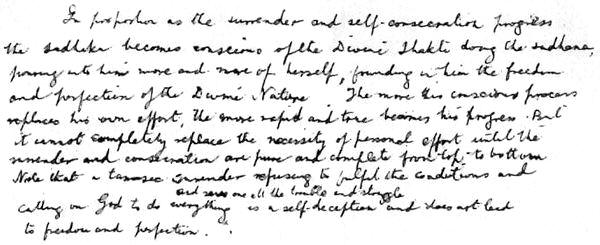 In proportion as the surrender and self-consecration progress
the sadhaka becomes conscious of the Divine Shakti doing the sadhana,
pouring into him more and more of herself, founding in him the freedom
and perfection of the Divine Nature. The more this conscious process
replaces his own effort, the more rapid and true becomes his progress. But
it cannot completely replace the necessity of personal effort until the
surrender and consecration are pure and complete from top to bottom
Note that a tamasic surrender refusing to fulfil the conditions and
and save one all the trouble and struggle
calling on God to do everything is a self-deception and does not lead
to freedom and perfection.